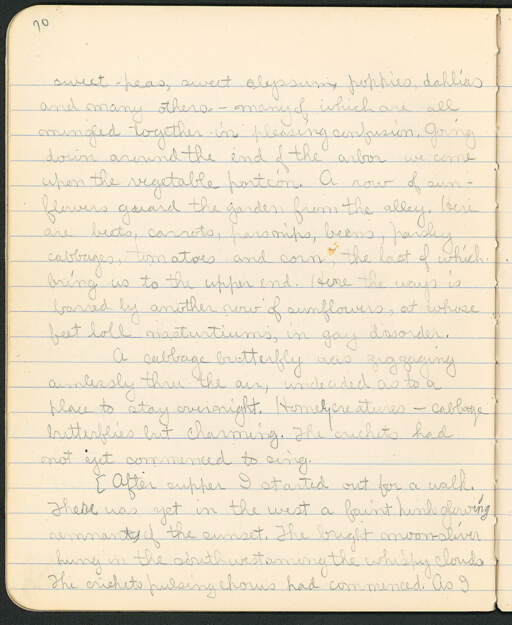 70
sweet-peas, sweet alyssum, poppies, dahlias
and many others - many of which are all
mingled together in pleasing confusion. Going
down around the end of the arbor we come
upon the vegetable portion. A row of sun-
flowers guard the garden from the alley. Here
are beets, carrots, parsnips, beans, parsley
cabbages, tomatoes and corn, the last of which
bring us to the upper end. Here the way is
barred by another row of sunflowers, at whose
feet loll nasturtiums, in gay disorder.
A cabbage butterfly was zigzaging
aimlessly thru the air, undecided as to a
place to stay overnight. Homely creatures - cabbage
butterflies but charming. The crickets had
not yet commenced to sing.
[After supper I started out for a walk.
There was yet in the west a faint pink glowing
remnant of the sunset. The bright moon-sliver
hung in the southwest among the whispy clouds
The crickets pulsing chorus had commenced. As I